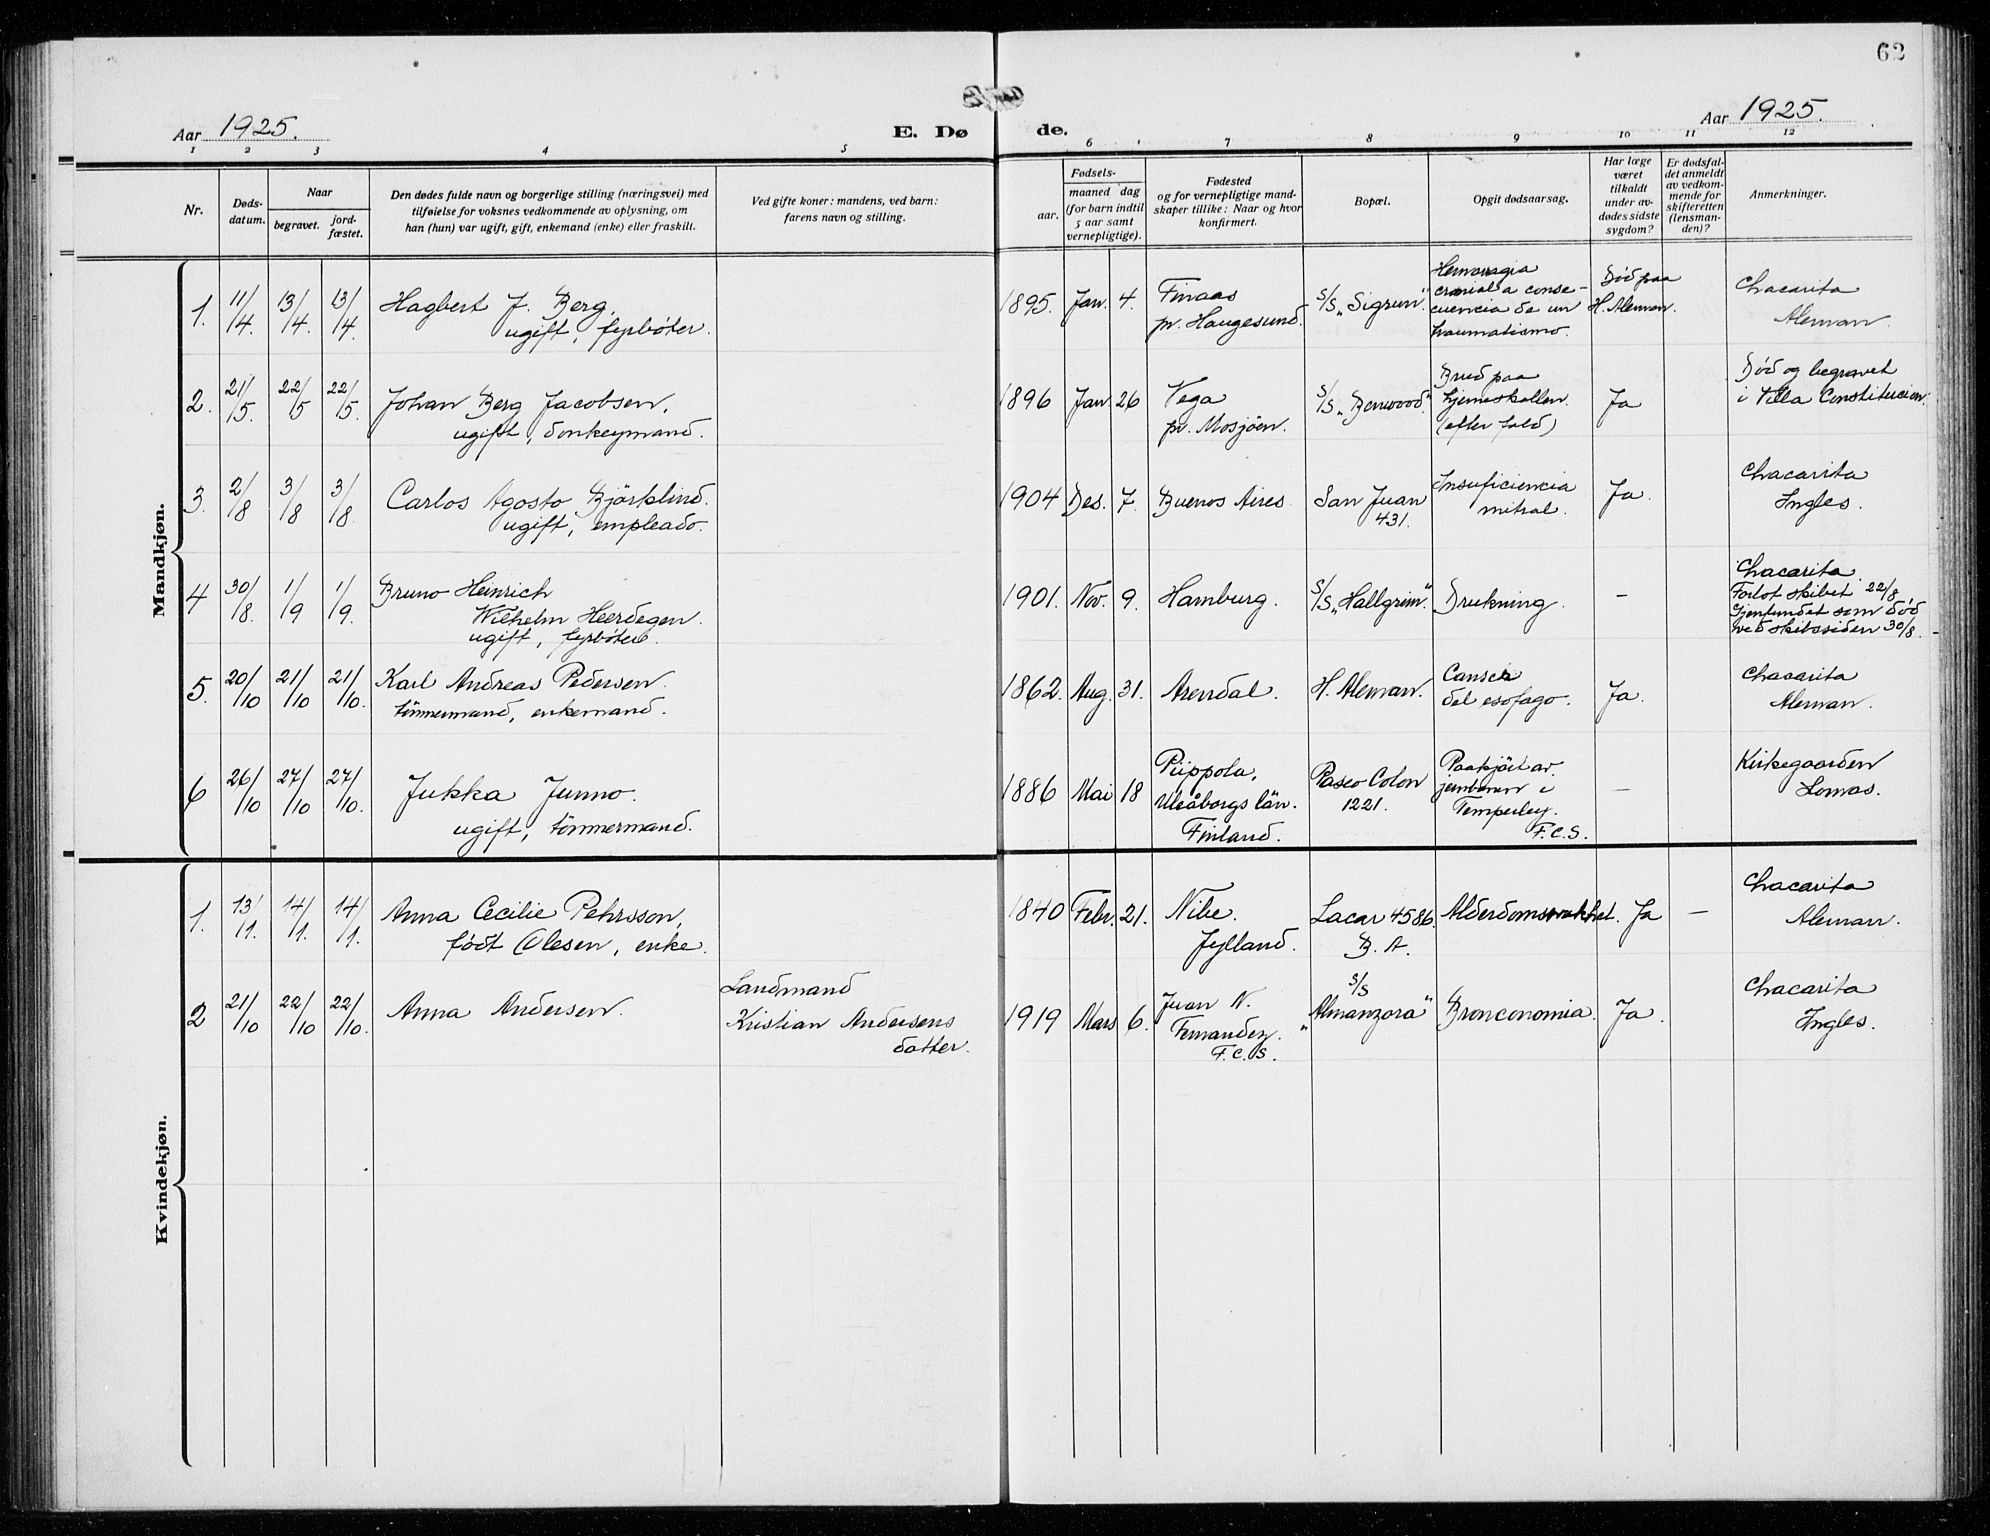 62
Aar 1925.
E. Dø de.
Aar 1925.
1 2 3 4 5 6 7 8 9 10 11 12
Nr.
Døds-
datum.
Naar
begravet.
jord-
fæstet.
Den dødes fulde navn og borgerlige stilling (næringsvei) med
tilføielse for voksnes vedkommende av oplysning, om
han (hun) var ugift, gift, enkemand (enke) eller fraskilt.
Ved gifte koner: mandens, ved barn:
farens navn og stilling.
Fødsels-
aar.
maaned dag
(for barn indtil
5 aar samt
vernepligtige).
Fødested
og for vernepligtige mand-
skaper tillike: Naar og hvor
konfirmert.
Bopæl.
Opgit dødsaarsag.
Har læge
været
tilkaldt
under av-
dødes sidste
sygdom?
Er dødsfal-
det anmeldt
av vedkom-
mende for
skifteretten
(lensman-
den)?
Anmerkninger.
Mandkjøn.
1. 11/4. 13/4. 13/4.
Hagbert J. Berg,
ugift, fyrbøter.
1895. Jan. 4.
Finaas
pr. Haugesund.
S/S „Sigrun“.
Hemoragia
cranial a conse-
cuencia de un
traumatismo.
Död paa
H. Aleman.
Chacarita
Aleman.
2. 21/5. 22/5 22/5.
Johan Berg Jacobsen,
ugift, donkeymand.
1896 Jan. 26
Vega
pr. Mosjöen.
S/S „Benwood“.
Brud paa
hjerneskallen.
(efter fald)
Ja
Död og begravet
i Villa Constitucion.
3. 2/8 3/8 3/8.
Carlos Agosto Björklind.
ugift, empleado.
1904 Des. 7.
Buenos Aires
San Juan
431.
Insuficiencia
mitral.
Ja.
Chacarita
Ingles.
4 30/8. 1/9 1/9.
Bruno Heinrich
Wilhelm Heerdegen.
ugift, fyrböter.
1901. Nov. 9.
Hamburg.
S/S „Hallgrim“.
Drukning.
–
Chacarita.
Forlot skibet 22/8
Gjenfundet som död
ved skibssiden 30/8.
5. 20/10 21/10 21/10.
Karl Andreas Pedersen.
tömmermand, enkemand.
1862. Aug. 31.
Arendal.
H. Aleman.
Canser
del esofago.
Ja.
Chacarita
Aleman.
6 26/10 27/10 27/10.
Jukka Junno.
ugift, tömmermand.
1886 Mai 18
Piippola,
Uleåborgs län.
Finland.
Paseo Colon
1221.
Paakjört av
jernbanen i
Temperley.
F.C.S.
–
Kirkegaarden
Lomas.
Kvindekjøn.
1. 13/1. 14/1. 14/1.
Anna Cecilie Pehrsson,
født Olesen, enke.
1840 Febr. 21.
Nibe.
Jylland.
Lacar 4586.
B. A.
Alderdomssvakhet.
Ja
–
Chacarita
Aleman.
2 21/10 22/10 22/10.
Anna Andersen.
Landmand
Kristian Andersens
datter.
1919 Mars 6.
Juan N.
Fernandez.
F.C.S.
S/S
„Almanzora“
Bronconomia.
Ja.
Chacarita
Ingles.